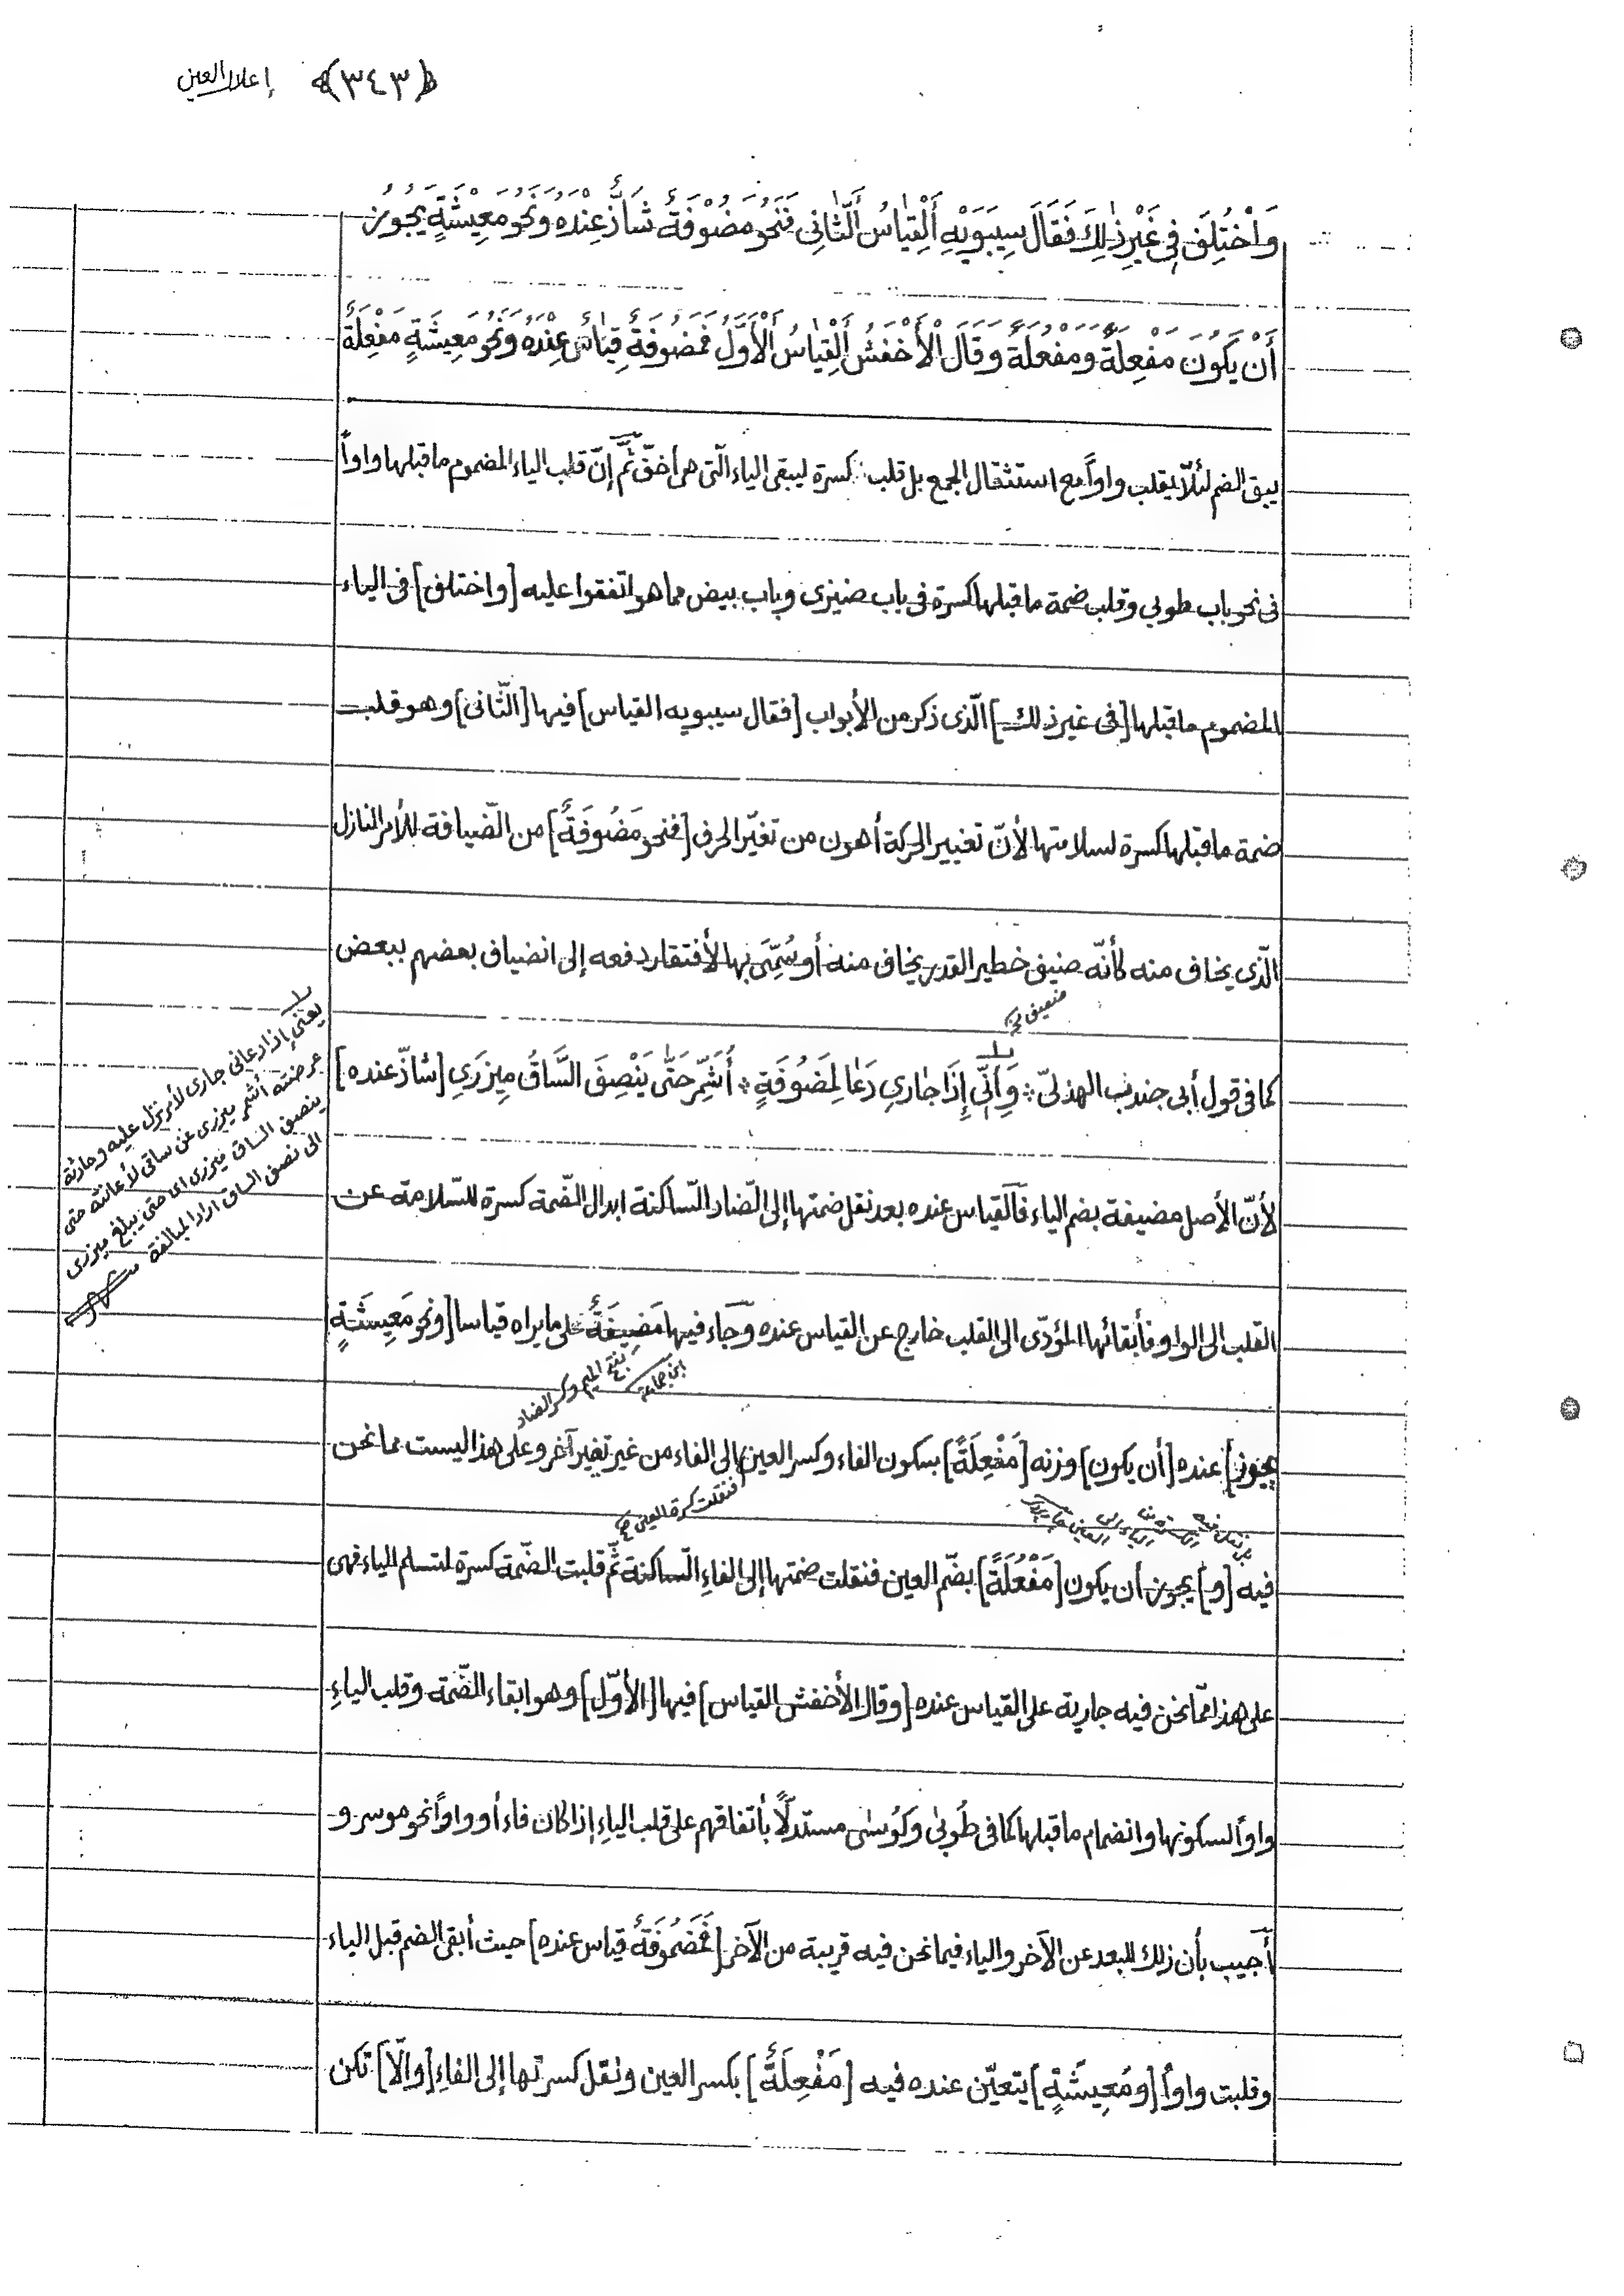 ﴿٣٤٣﴾ إعلال العين
وَاْخْتُلِفَ فِي غَيْرِ ذٰلِكَ فَقَالَ سِيبَوَيْهِ أَلْقِيٰاسُ أَلثّٰانِى فَنَحْوُ مَضُوْفَةٌ شَاذٌّ عِنْدَهُ وَنَحْوُ مَعِيْشَةٍ يَجُوُزُ
أَنْ يَكُوَنَ مَفْعِلَةً وَمَفْعُلَةً وَقَالَ الْأَخْفَشُ أَلْقِيٰاسُ الْأَوَّلُ فَمَضُوفَةٌ قِيٰاسٌ عِنْدَهُ وَنَحْوُ مَعِيشَةٍ مَفْعِلَةٌ
يبق الضم لئلّا يقلب واواً مع استثقال الجمع بل قلب كسرة ليبقى الياء الّتى هى أخفّ ثمّ إنّ قلب الياء المضموم ما قبلها واواً
فى نحو باب طوبى وقلب ضمة ما قبلها كسرة فى باب ضيزى وباب بيض مما هو اتفقوا عليه [واختلف] فى الياء
المضموم ما قبلها [فى غير ذلك] الّذى ذكر من الأبواب [فقال سيبويه القياس] فيها [الثّانى] وهو قلب
ضمة ما قبلها كسرة لسلامتها لأنّ تغيير الحركة أهون من تغيّر الحرف [فنحو مَضُوفَةٌ] من الضّيافة للأمر النازل
الّذى يخاف منه كأنّه ضيف خطير القدر يخاف منه أو سُمِّىَ بها لأفتقار دفعه إلى انضياف بعضهم ببعض
كما فى قول أبى جندب الهذلىّ ۞ وَاَنِّي إِذَا جٰارِي دَعٰا لِمَضُوفَةٍ ۞ أُشَمِّرُ حَتّٰى يَنْصِفَ السَّاقُ مِيزَرِي [شاذّ عنده]
لأنّ الأصل مضيفة بضم الياء فالقياس عنده بعد نقل ضمتها إلى الضاد السّاكنة ابدال الضّمة كسرة للسّلامة عن
القلب الى الواو فأبقائها المؤدّى الى القلب خارج عن القياس عنده وجاء فيها مَضِيفَةٌ على ما يراه قياسا [ونحو مَعِيشَةٍ
بفتح الميم وكسر الضاد
يجوز] عنده [أن يكون] وزنه [مَفْعِلَةً] بسكون الفاء وكسر العين الى الفاء من غير تغيير آخر وعلى هذا ليست مما نحن
فنقلت كسرة العين
فيه [و] يجوز أن يكون [مَفْعُلَةً] بضّم العين فنقلت ضمتها إلى الفاءِ السّاكنة ثمّ قلبت الضّمة كسرة لتسلم الياء فهى
على هذا ممّا نحن فيه جارية على القياس عنده [وقال الأخفش القياس] فيها [الأوّل] وهو ابقاء الضّمة وقلب الياءِ
واواً لسكونها وانضمام ما قبلها كما فى طُوبٰى وكُوسٰى مستدلًّا بأتفاقهم على قلب الياءِ إذا كان فاءً أو واواً نحو موسر و
أُجيب بأن ذلك للبعد عن الآخر والياء فيما نحن فيه قريبة من الآخر [فَمَضُوفَةٌ قياس عنده] حيث أبقى الضم قبل الياء
وقلبت واواً [ومَعِيشَةٍ] يتعيّن عنده فيه [مَفْعِلَةٌ] بكسر العين ونقل كسرتها إلى الفاءِ [وإلّا] تكن
يعنى إذا دعانى جارى لأمر نزل عليه وحادثة
عرضته أشمر ميزرى عن ساقى لأعانته حتى
ينصف الساق ميزرى اى حتى يبلغ ميزرى
الى نصف الساق اراد المبالغة